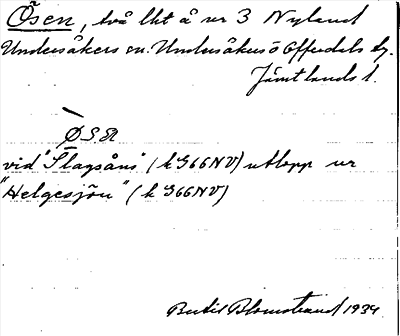 Ösen, två lht å nr 3 Nyland
Undersåkers sn. Undersåkers o Offerdals tg.
Jämtlands l.
vid "Slagsåns" (k S66NV) utlopp ur
"Helgesjön" (k S66NV)
Bertil Blomstrand 1934